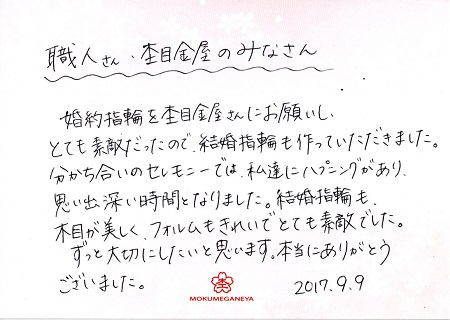 職人さん、杢目金屋のみなさん
婚約指輪を杢目金屋さんにお願いし、
とても素敵だったので、結婚指輪も作っていただきました。
分かち合いのセレモニーでは、私達にハプニングがあり、
思い出深い時間となりました。結婚指輪も、
木目が美しく、フォルムもきれいでとても素敵でした。
ずっと大切にしたいと思います。本当にありがとう
ございました。
杢
MOKUMEGANEYA
2017.9.9